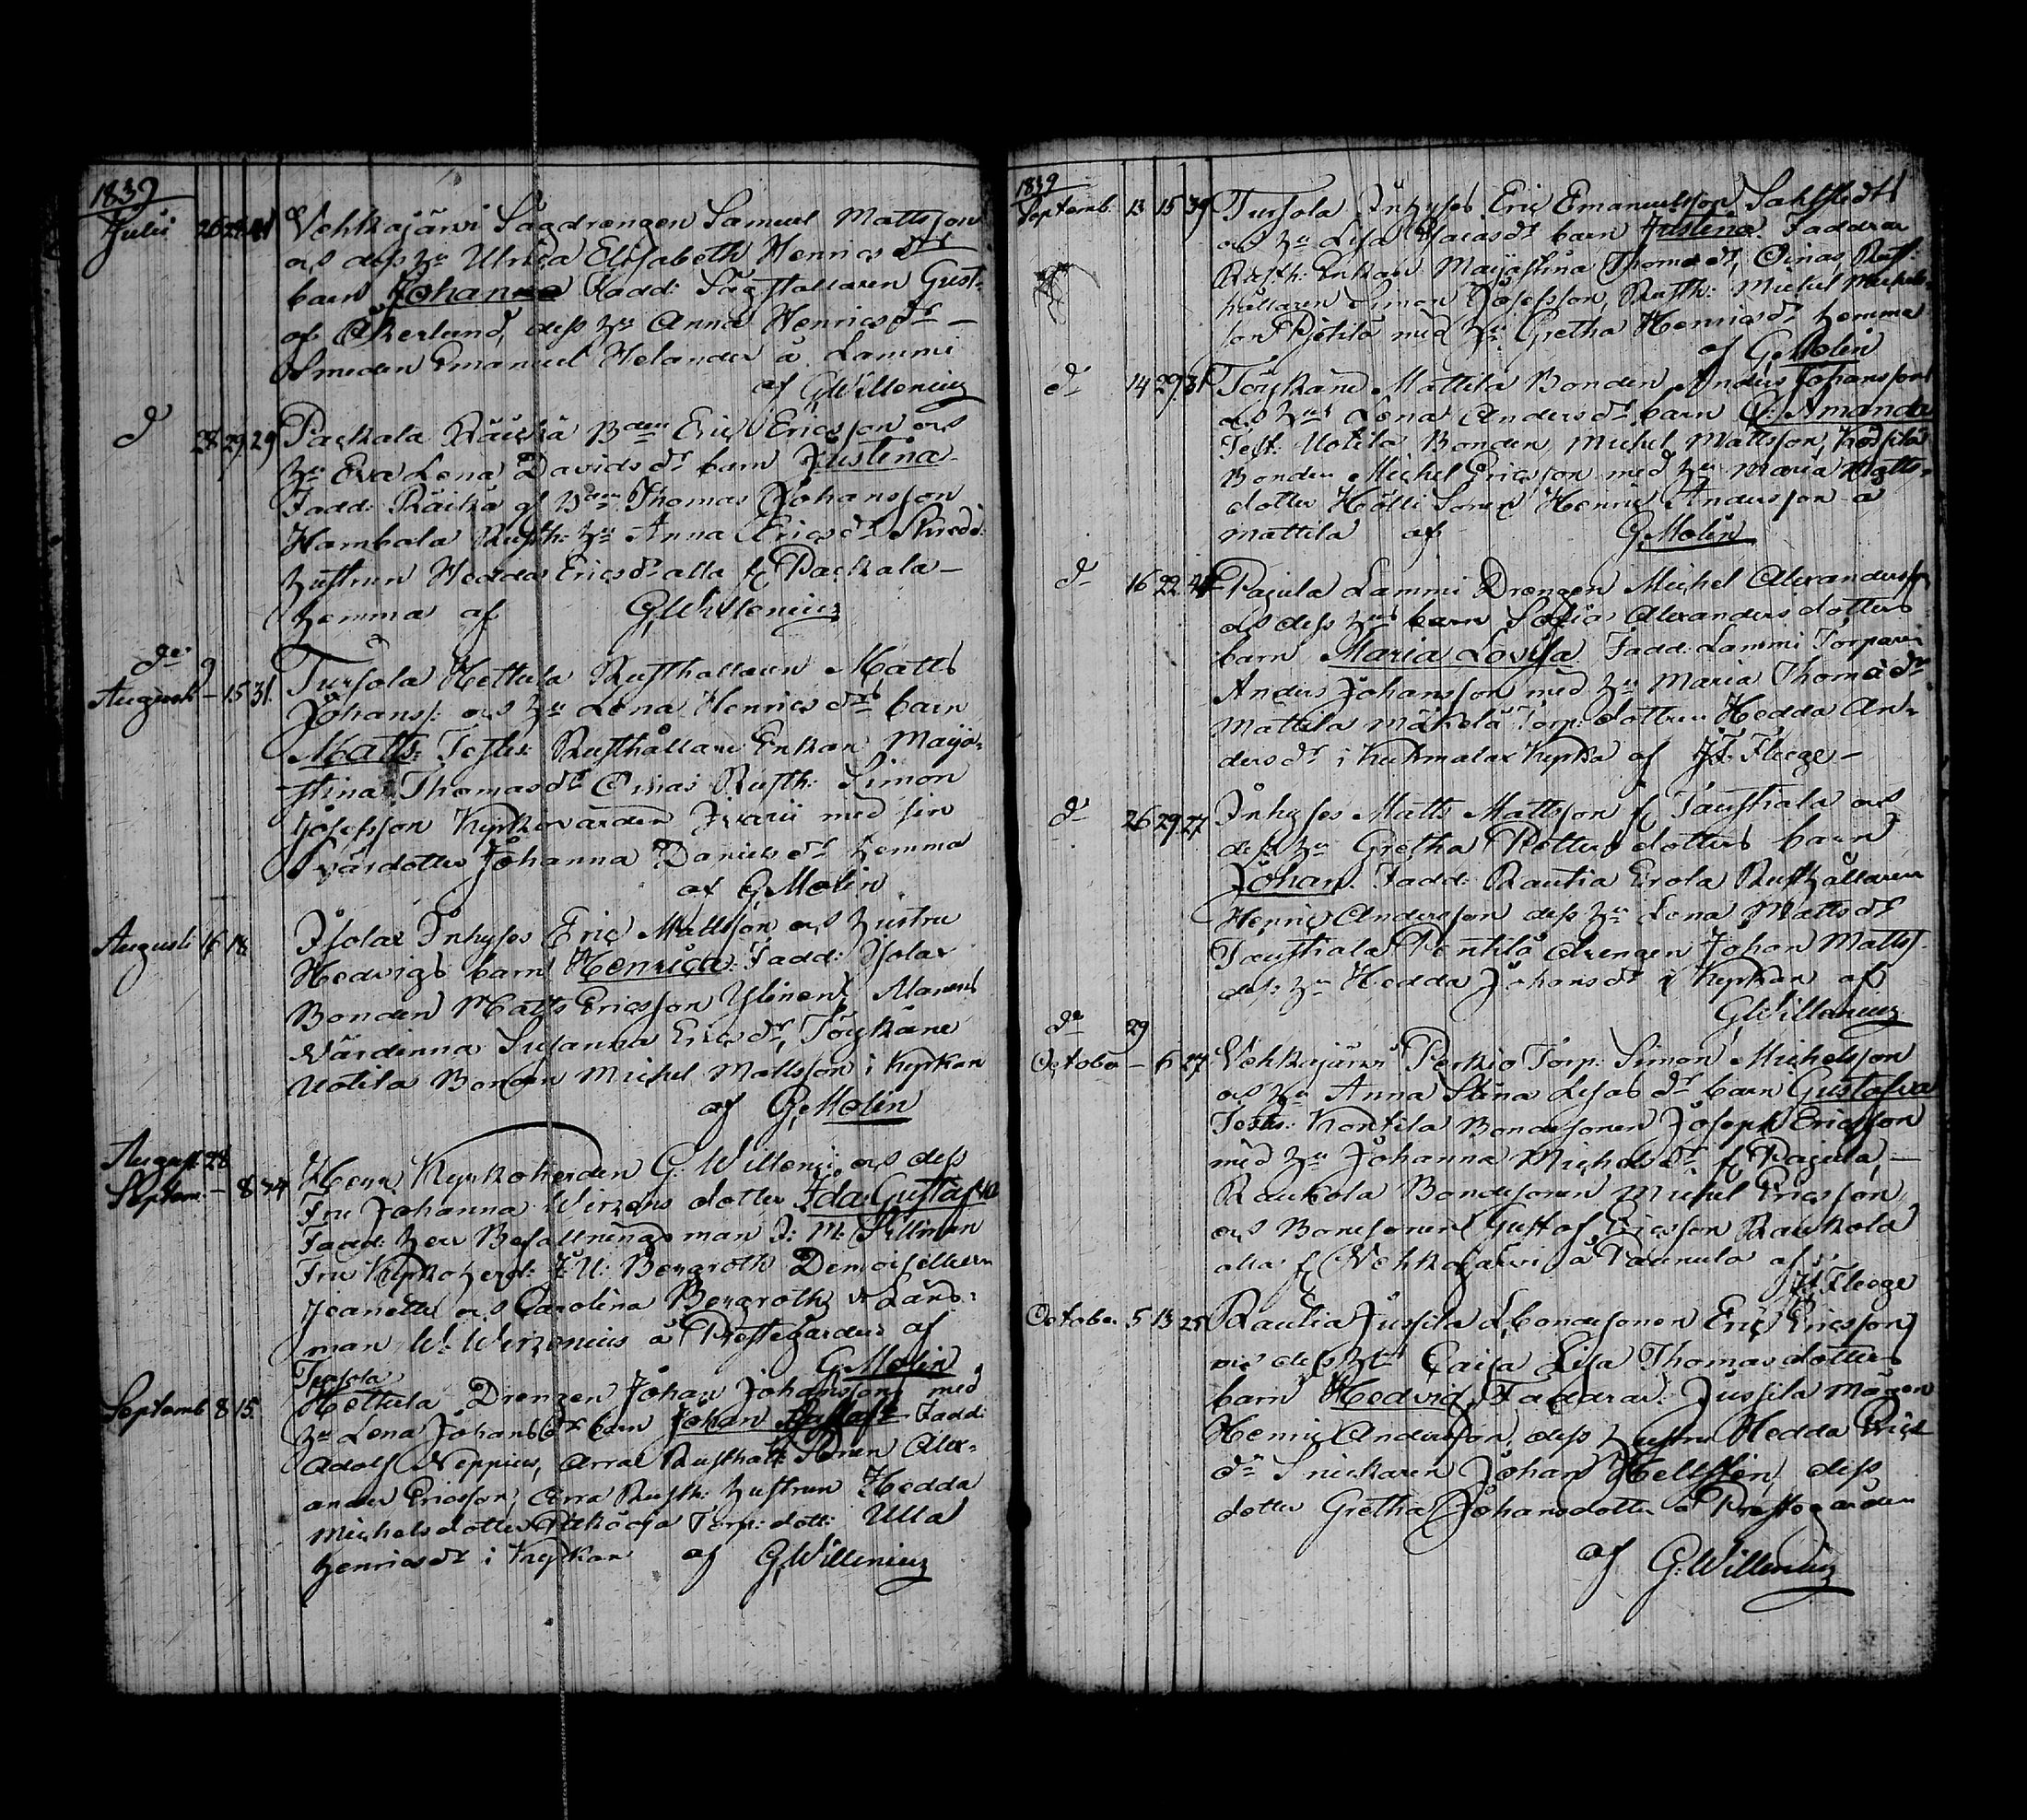 1839
Julii 26 28 41 Vehkajärvi Sågdrengen Samuel Mattsson
och dess hu Ulrica Elisabeth Henricsdrs
barn Johanna Fadd: Sågställaren Gust-
af Åkerlund, dess hu Anna Henricsdr —
Smeden Emanuel Helander å Lammi
af G Willenius
do 28 29 29 Packala Räickä Bdn Eric Ericsson och
hu Eva Lena Davidsdr barn Justina
Fadd: Räickä gl Bdn Thomas Johansson
Hambala Rusth: hu Anna Ericsdr
hustrun Hedda Ericsdr alla fr Packala —
hemma af G Willenius
do 9
Augusti — 15 31. Tursola Hettula Rusthållaren Matts
Johanss: och hu Lena Henricsdrs barn
Matts: Testes Rusthållare Enkan Maija
Stina Thomasdr Oinas Rusth: Simon
Josefsson Kyrkovärden Ivarii med sin
svärdotter Johanna Danielsdr hemma
af G Molin
Augusti 16 18. Isolax Inhyses Eric Mattsson och hustru
Hedvigs barn Henrica: Fadd: Isolax
Bonden Matts Ericsson Ylinen,
Värdinna Susanna Ericsdr, Töyräne
Uotila Bonden Michel Mattsson i Kyrkan
af G. Molin
August 28
Septem: — 8 34 Herr Kyrkoherden G. Willenii och dess
Fru Johanna Wirzens dotter Ida Gustafva
Fadd: herr Befallningsman J: M: Sillman
Fru Kyrkoherd: Bergroth Demoisellerne
Jeanette och Carolina Bergroth, v Läns-
man W. Wirzenius å Prestegården af
G Molin
Tursola
Septemb 8 15. Hettula Drengen Johan Johansson med
hu Lena Johansdr barn Johan Fadd:
Adolf Neppius, Arra Rusthåll: Sonen Alex-
ander Ericsson, Arra Rusth: hustrun Hedda
Michelsdotter Torp: dott: Ulla
henricsdr i Kyrkan af G Willenius
1839
Septemb. 13 15 39 Tursola Inhyses Eric Emanuelsson Sahlstedt
och hu Lisa barn Justina. Faddrar
Rusth: Enkan Maijastina Thomædr, Oinas Rust-
hållaren Simon Josefsson, Rusth: Michel Michels-
son Pietilä med hu Gretha Henricsdr hemma
af G. Molin
do 14 29 31 Töyräne Mattila Bonden Anders Johansson
och hus Lena Andersdr barn Amanda
Test: Uotila Bonden Michel Mattsson,
Bonden Michel Ericsson med hu Maria Matts-
dotter Hölli Sonen Henric Andersson å
Mattila af G. Molin
do 16 22 Pajula Lammi Drengen Michel Alexandersson
och dess hus barn Sofia Alexanders dotters
barn Maria Lovisa Fadd: Lammi Torparen
Anders Johansson med hu Maria Thomædr
Mattila Mäkelä Torp: dottren Hedda An-
dersdr i Kuhmalax Kyrka af Fleege —
do 26 29 27 Inhyses Matts Mattsson fr Tausthala och
dess hu Gretha Petters dotters barn
Johan. Fadd: Rautia Erola Rusthållaren
Henric Andersson dess hu Lena Mattsdr
Tausthala Penttilä drengen Johan Mattss:
dess hu Hedda Johansdr i Kyrkan af
G Willenius
do 29
October — 6 27 Vehkajärvi Perkiö Torp: Simon Michelsson
och hu Anna Stina barn Gustafva
Testes: Konttila Bondesonen Joseph Ericsson
med hu Johanna Michelsdr fr Pajula, —
Raukola Bondesonen Michel Ericsson
och Bonesonen Gustaf Ericsson Raukola
alla fr Vehkajärvi å Paunula af
Fleege
October 5 13 25 Rautia Jussila Bondesonen Eric Ericsson
och dess hu Caisa Lisa Thomasdotters
barn Hedvig, Faddrar: Jussila Mågen
Henric Andersson, dess hustru Hedda Erics
dr Snickaren Johan Hellsten, dess
dotter Gretha Johansdotter å Prestegården
af G: Willenius